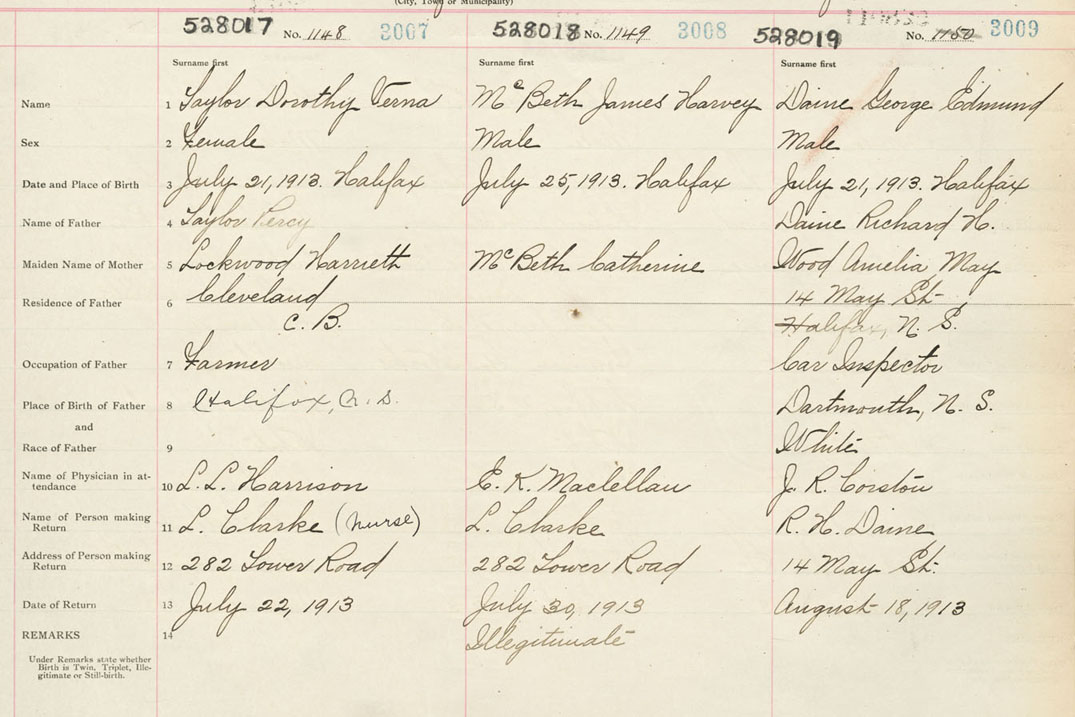 (City, Town or Municipality)
528017 No. 1148 3007 528018 No. 1149 3008 528019 No. 1150 3009
Surname first Surname first Surname first
Name 1 Taylor Dorothy Verna McBeth James Harvey Daine George Edmund
Sex 2 Female Male Male
Date and Place of Birth 3 July 21, 1913. Halifax July 25, 1913. Halifax July 21, 1913. Halifax
Name of Father 4 Taylor Percy Daine Richard H.
Maiden Name of Mother 5 Lockwood Harrieth McBeth Catherine Wood Amelia May
Residence of Father 6 Cleveland 14 May St.
C. B. Halifax, N. S.
Occupation of Father 7 Farmer Car Inspector
Place of Birth of Father 8 Halifax, N. S. Dartmouth, N. S.
and
Race of Father 9 White
Name of Physician in at-
tendance 10 L. L. Harrison E. K. Maclellan J. R. Corston
Name of Person making
Return 11 L. Clarke (nurse) L. Clarke R. H. Daine
Address of Person making
Return 12 282 Tower Road 282 Tower Road 14 May St.
Date of Return 13 July 22, 1913 July 30, 1913 August 18, 1913
REMARKS 14 Illegitimate
Under Remarks state whether
Birth is Twin, Triplet, Ille-
gitimate or Still-birth.